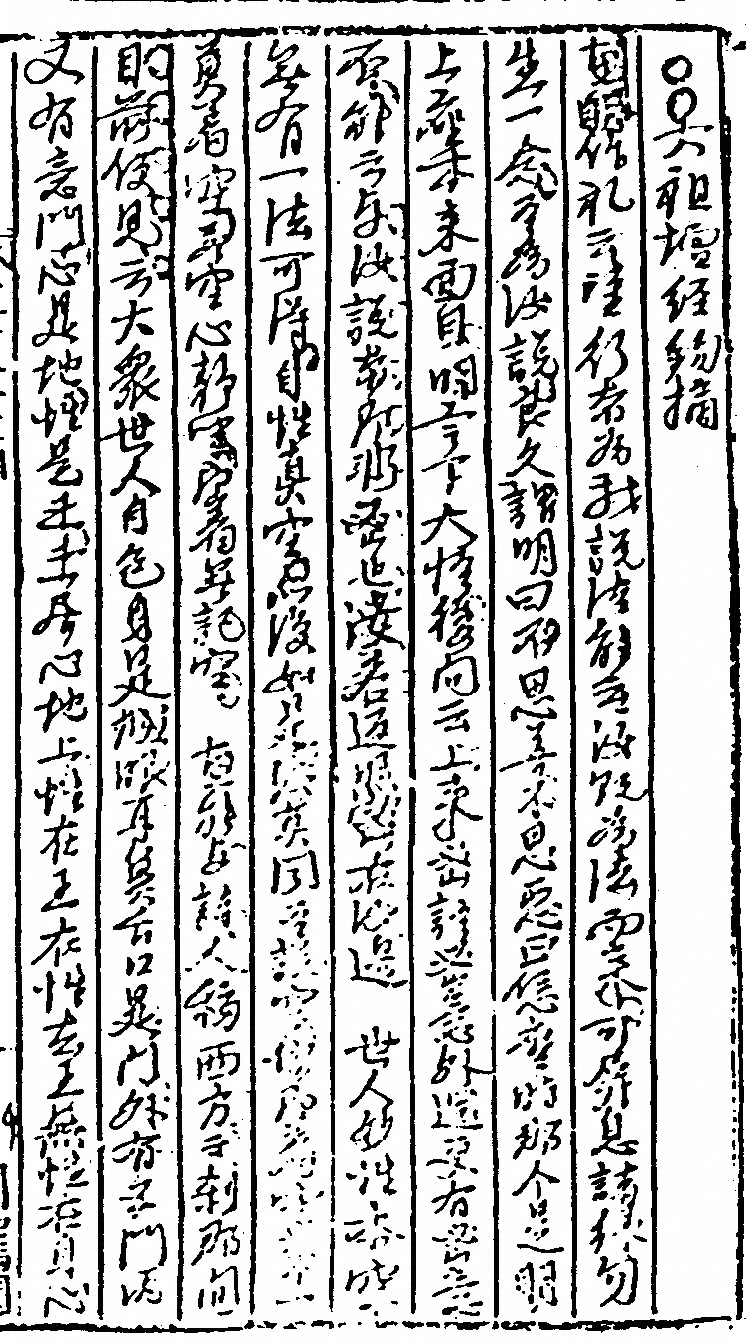 六祖壇經
惠明作礼云望行者為我說法能云汝既為法而來可屏息諸緣勿
生一念吾為汝說良久謂明曰不思善不思惡正恁麼時那个是明
上座本來面目明言下大悟復問云上來密語密意外還更有密意
否能云与汝說者即非密也汝若返照密在汝邊 世人妙性
無有一法可得自性真空亦復如是 莫聞吾說空便即着空第一
莫着空若空心靜坐即着無記空 惠能与諸人移西方于刹那間
目前便見 云大衆世人自色身是城眼耳鼻舌口是門外有五門內
又有意門心是地性是王王居心地上性在王在性去王無性在身心